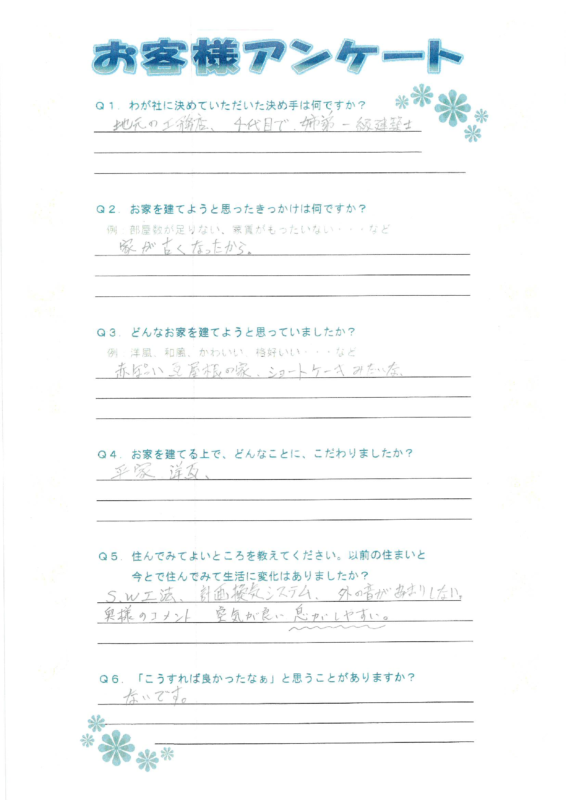 お客様アンケート
Q1．わが社に決めていただいた決め手は何ですか？
地元の工務店、4代目で、姉弟一級建築士
Q2．お家を建てようと思ったきっかけは何ですか？
例．部屋数が足りない、家賃がもったいない・・・など
家が古くなったから。
Q3．どんなお家を建てようと思っていましたか？
例．洋風、和風、かわいい、格好いい・・・など
赤ぽい瓦屋根の家、ショートケーキみたいな、
Q4．お家を建てる上で、どんなことに、こだわりましたか？
平家 洋瓦、
Q5．住んでみてよいところを教えてください。以前の住まいと
今とで住んでみて生活に変化はありましたか？
S.W工法、計画換気システム、外の音があまりしない。
奥様のコメント 空気が良い 息がしやすい。
Q6．「こうすれば良かったなぁ」と思うことがありますか？
ないです。